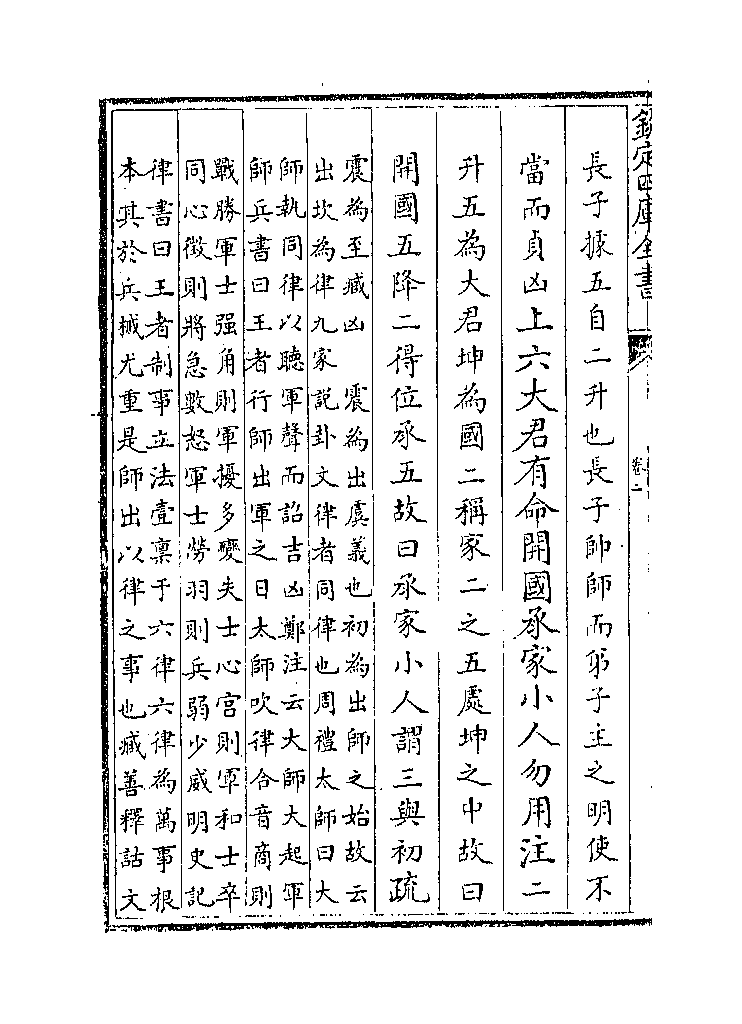 欽定四庫全書
卷二
長子據五自二升也長子帥師而弟子主之明使不
當而貞凶上六大君有命開國承家小人勿用注二
升五為大君坤為國二稱家二之五處坤之中故曰
開國五降二得位承五故曰承家小人謂三與初疏
震為至臧凶　震為出虞義也初為出師之始故云
出坎為律九家說卦文律者同律也周禮太師曰大
師執同律以聽軍聲而詔吉凶鄭注云大師大起軍
師兵書曰王者行師出軍之日太師吹律合音商則
戰勝軍士强角則軍擾多變失士心宮則軍和士卒
同心徵則將急數怒軍士勞羽則兵弱少威明史記
律書曰王者制事立法壹禀于六律六律為萬事根
本其於兵械尤重是師出以律之事也臧善釋詁文